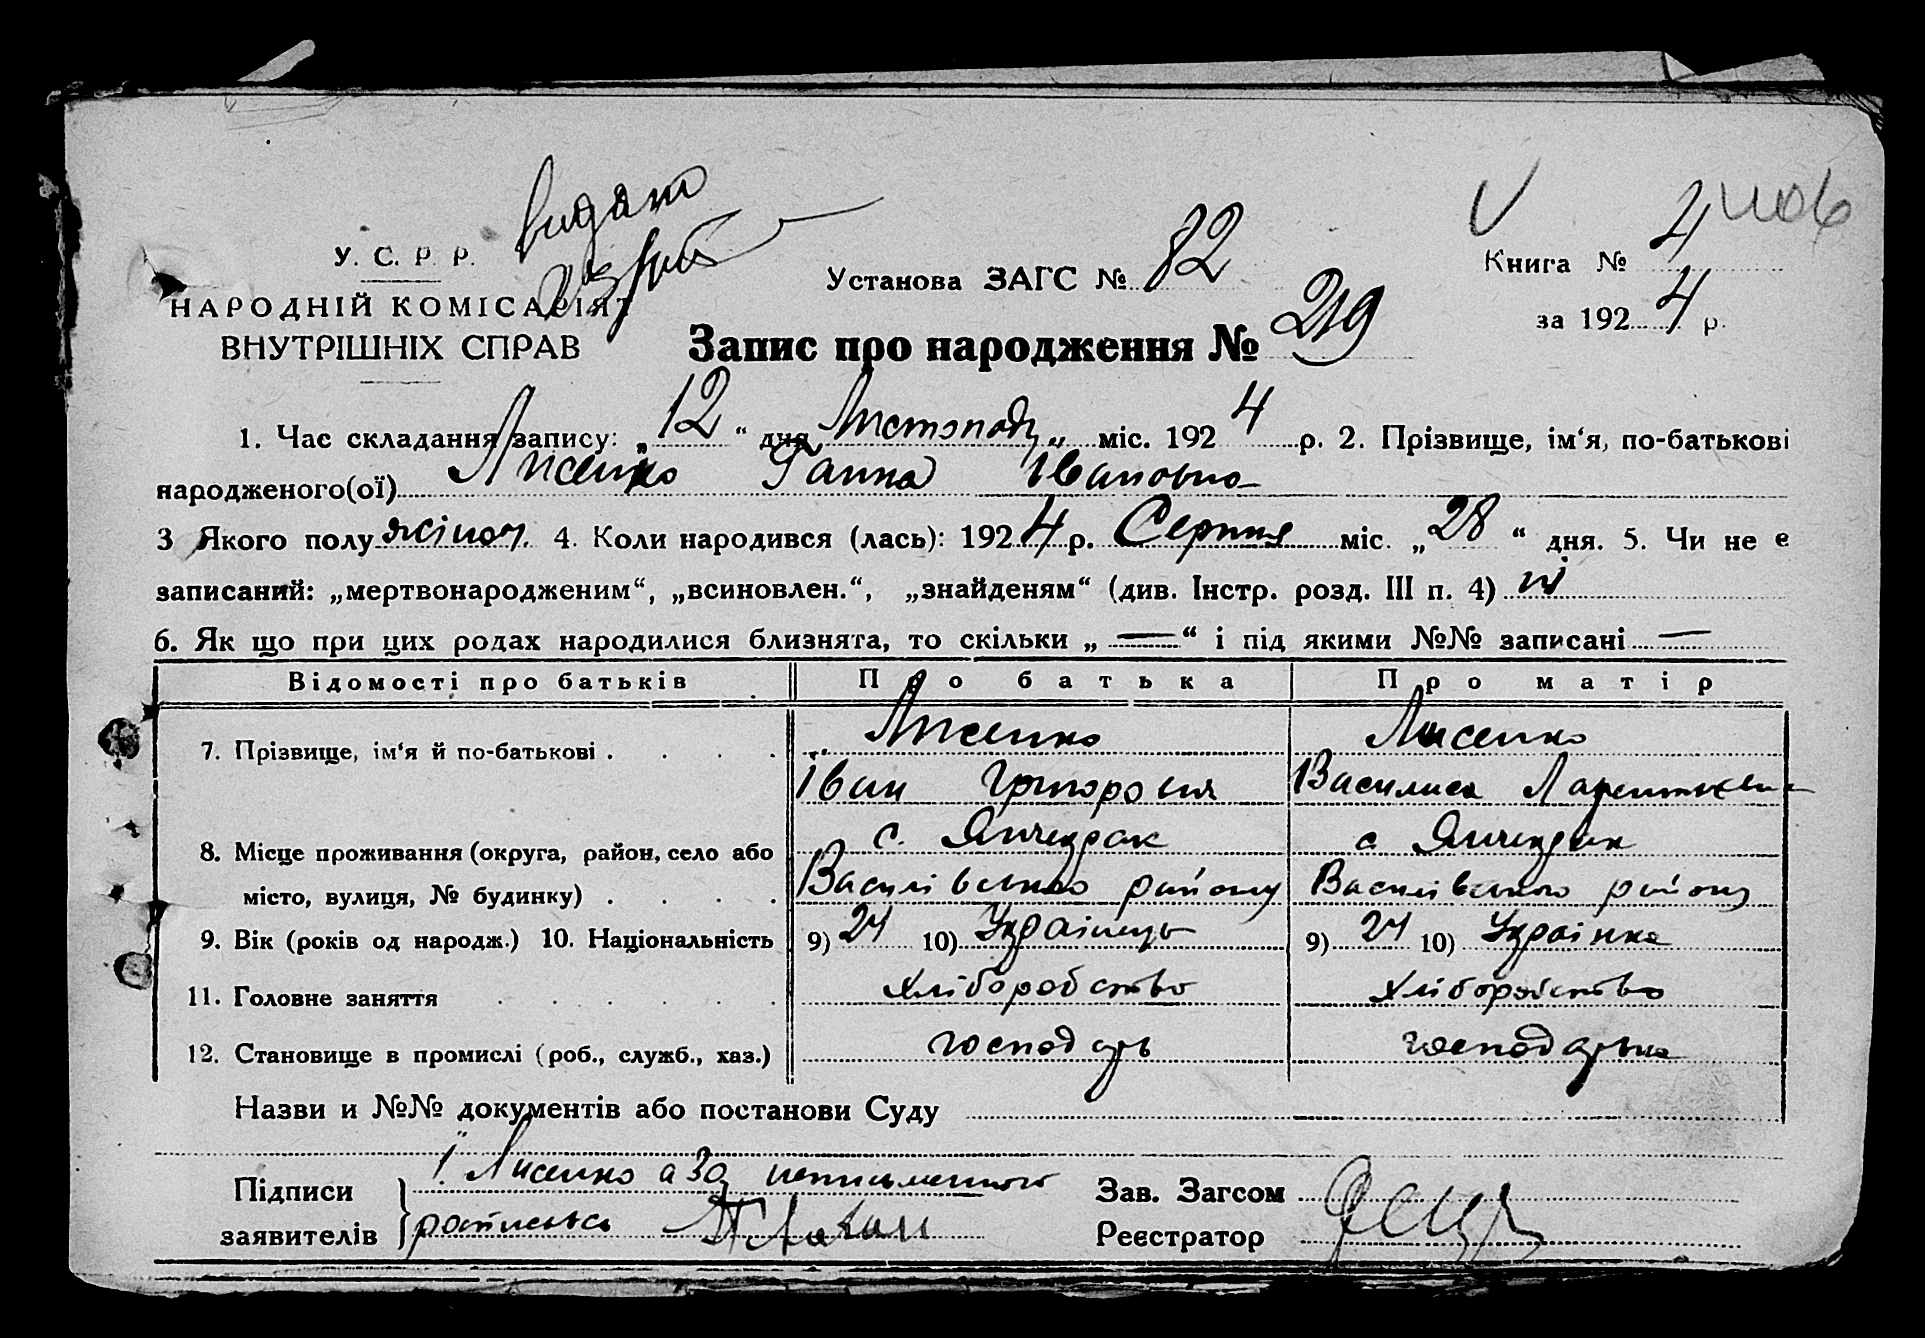 видано
У. С. Р. Р.
НАРОДНІЙ КОМІСАРІЯТ
ВНУТРІШНІХ СПРАВ
Установа ЗАГС № 82
Книга № 4
за 1924 р.
Запис про народження № 219
1. Час складання запису: „12“ дня Листопаду міс. 1924 р. 2. Прізвище, ім‘я, по-батькові
народженого(ої) Лисенко Ганна Івановна
3 Якого полу жіноч. 4. Коли народився (лась): 1924 р. Серпня міс. „28“ дня. 5. Чи не є
записаний: „мертвонародженим“, „всиновлен.“, „знайденям“ (див. Інстр. розд. III п. 4) ні
6. Як що при цих родах народилися близнята, то скільки „—“ і під якими №№ записані —
Відомості про батьків Про батька Про матір
7. Прізвище, ім‘я й по-батькові . . . . Лисенко Лисенко
Іван Григорович Василиса
8. Місце проживання (округа, район, село або с. Янчекрак с Янчекрак
місто, вулиця, № будинку) . . . . Василівського району Василівського району
9. Вік (років од народж.) 10. Національність 9) 24 10) Українець 9) 24 10) Українка
11. Головне заняття . . . . . . хліборобство хліборобство
12. Становище в промислі (роб., служб., хаз.) господарь господарька
Назви и №№ документів або постанови Суду
Підписи заявителів
І. Лисенко а за неписьменного
росписавсь
Зав. Загсом
Реєстратор